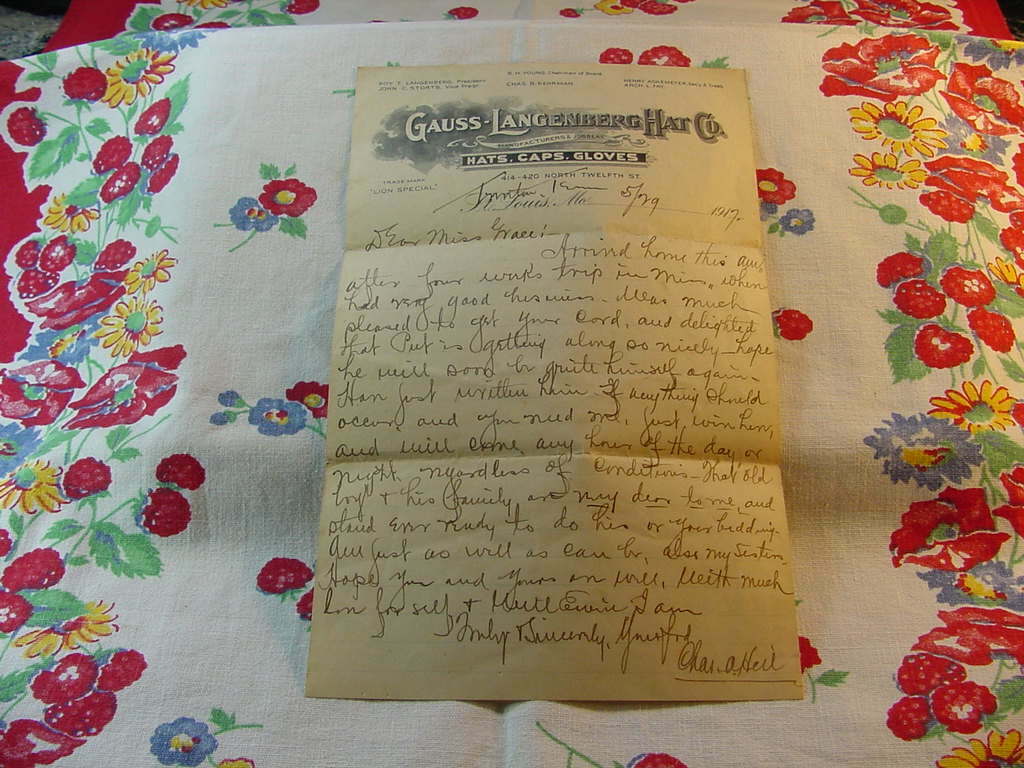 B. H. YOUNG, Chairman of Board
ROY E. LANGENBERG, President
CHAS. B.
HENRY ACKEMEYER, Sec'y & Treas.
JOHN C. STURTS, Vice Prest.
ARCH. L.
GAUSS-LANGENBERG HAT CO.
MANUFACTURERS & JOBBERS
HATS, CAPS, GLOVES
414-420 NORTH TWELFTH ST.
TRADE MARK
"LION SPECIAL"
St. Louis, Mo. 5/29 1917.
Dear Miss Grace:-
Arrived home this
after four weeks trip in Miss, where
had very good business. Was much
pleased to get your card, and delighted
that is getting along so nicely - hope
he will soon be quite himself again -
Have just written him if anything should
occur, and you need me, just wire here,
and will come any hour of the day or
night, regardless of conditions - That old
boy & his family are very dear to me, and
stand ever ready to do his or your bidding.
All just as well as can be, also my sisters
Hope you and yours are well, With much
love for self & I am
Truly & Sincerely, Your frd
Chas. A. Heil